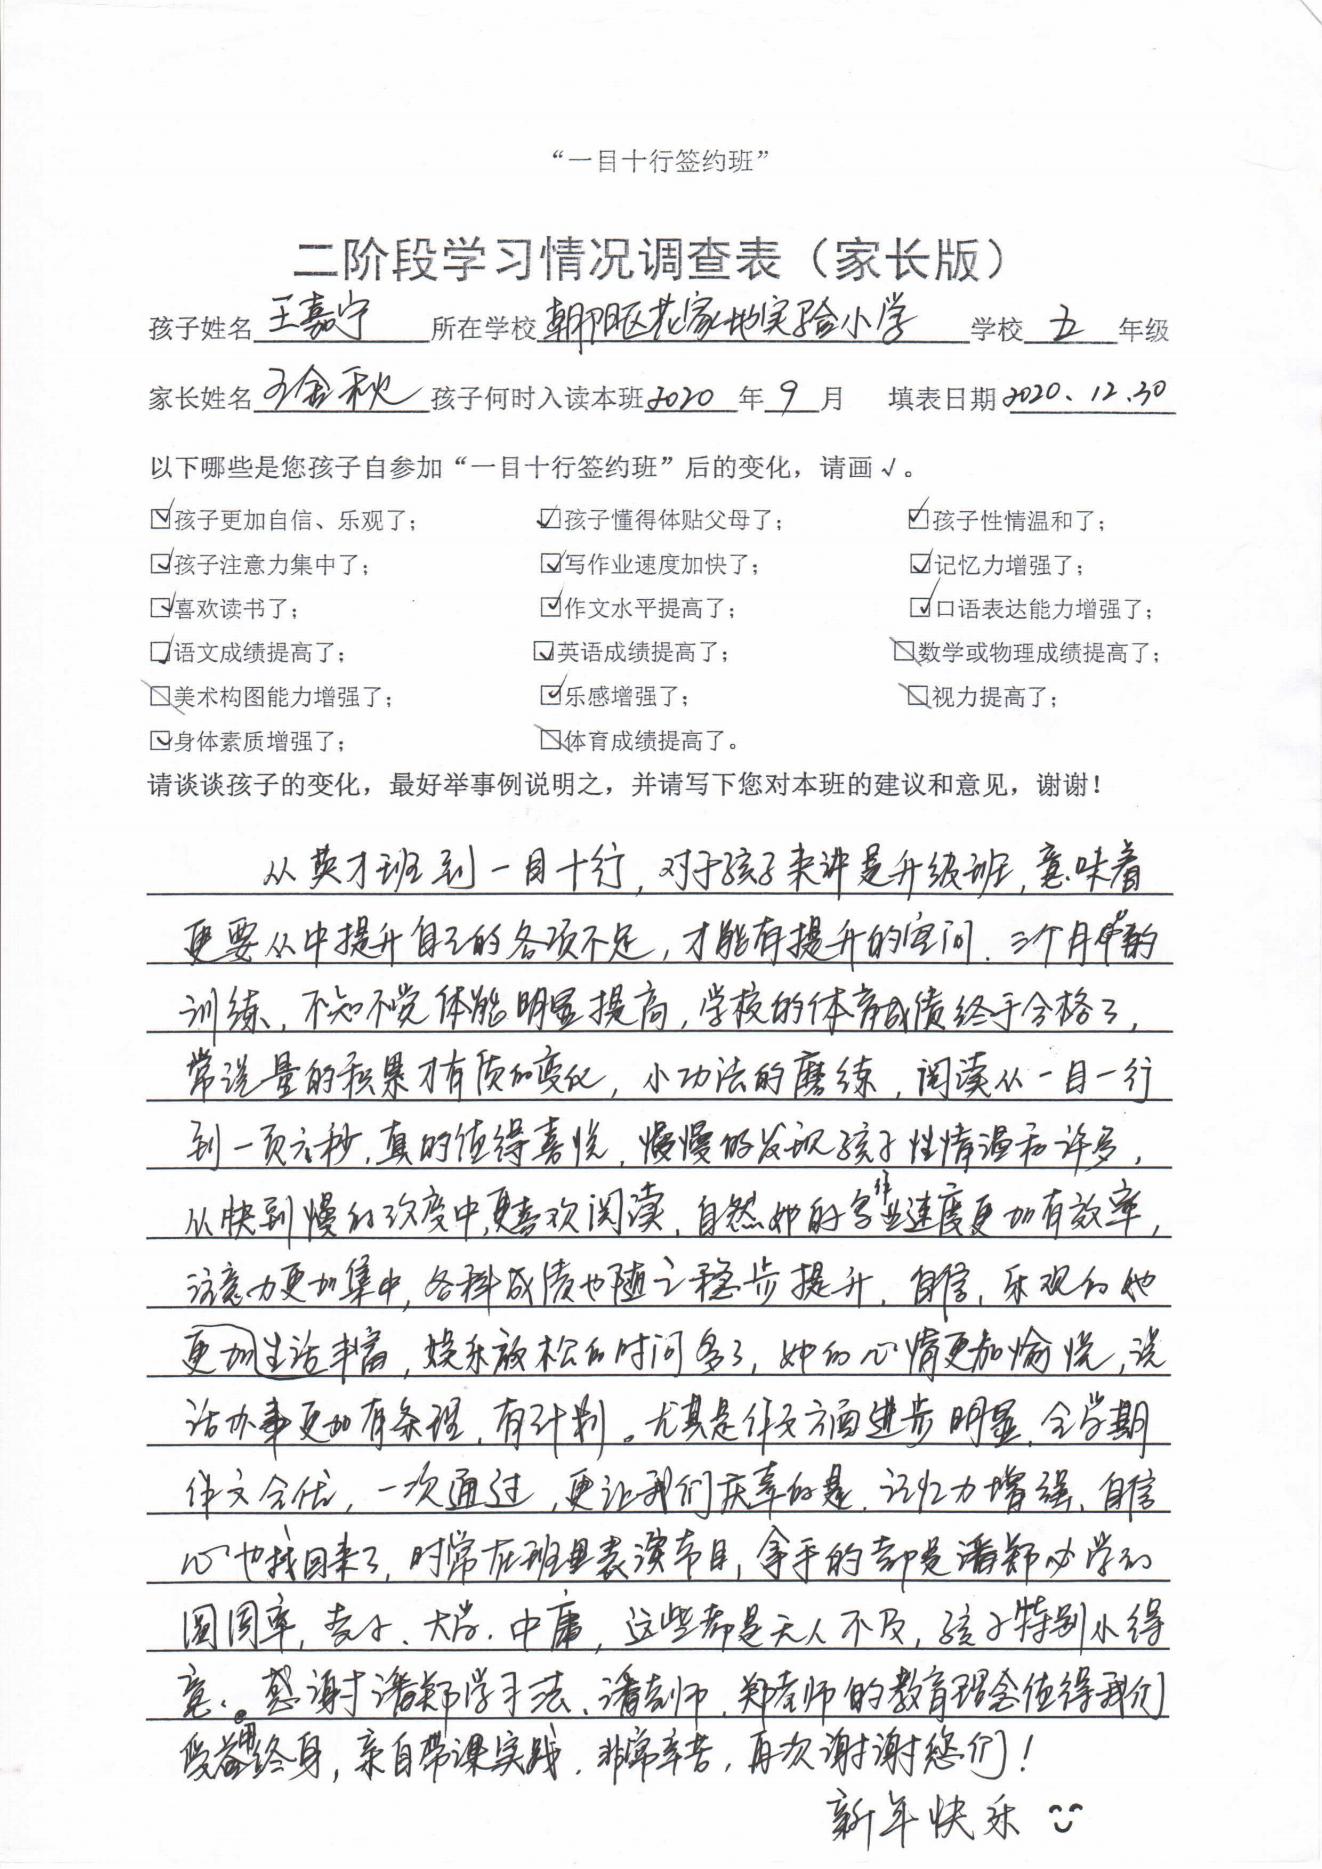 “一目十行签约班”
二阶段学习情况调查表（家长版）
孩子姓名 王嘉宁 所在学校 朝阳区花家地实验小学 学校 五 年级
家长姓名 王金秋 孩子何时入读本班 2020 年 9 月 填表日期 2020.12.30
以下哪些是您孩子自参加“一目十行签约班”后的变化，请画√。
☑孩子更加自信、乐观了； ☑孩子懂得体贴父母了； ☑孩子性情温和了；
☑孩子注意力集中了； ☑写作业速度加快了； ☑记忆力增强了；
☑喜欢读书了； ☑作文水平提高了； ☑口语表达能力增强了；
☑语文成绩提高了； ☑英语成绩提高了； ☒数学或物理成绩提高了；
☒美术构图能力增强了； ☑乐感增强了； ☒视力提高了；
☑身体素质增强了； ☒体育成绩提高了。
请谈谈孩子的变化，最好举事例说明之，并请写下您对本班的建议和意见，谢谢！
从英才班到一目十行，对于孩子来讲是升级班，意味着
更要从中提升自己的各项不足，才能有提升的空间．三个月的
训练，不知不觉体能明显提高，学校的体育成绩终于合格了，
常说量的积累才有质的变化，小功法的磨练，阅读从一目一行
到一页六秒，真的值得喜悦，慢慢的发现孩子性情温和许多，
从快到慢的改变中，更喜欢阅读，自然她的写作业速度更加有效率，
注意力更加集中，各科成绩也随之稳步提升，自信，乐观的她
更加生活丰富，娱乐放松的时间多了，她的心情更加愉悦，说
话办事更加有条理，有计划。尤其是作文方面进步明显，全学期
作文全优，一次通过，更让我们庆幸的是，记忆力增强，自信
心也找回来了，时常在班里表演节目，拿手的都是潘郑必学的
圆周率，老子、大学、中庸，这些都是无人不及，孩子特别小得
意。感谢潘郑学习法、潘老师，郑老师的教育理念值得我们
受益终身，亲自带课实践，非常辛苦，再次谢谢您们！
新年快乐